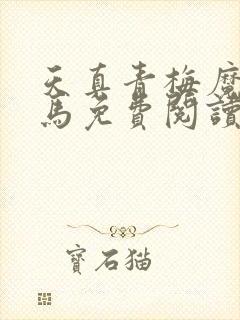 天真青梅魔
馬免費閱讀
寶石猫